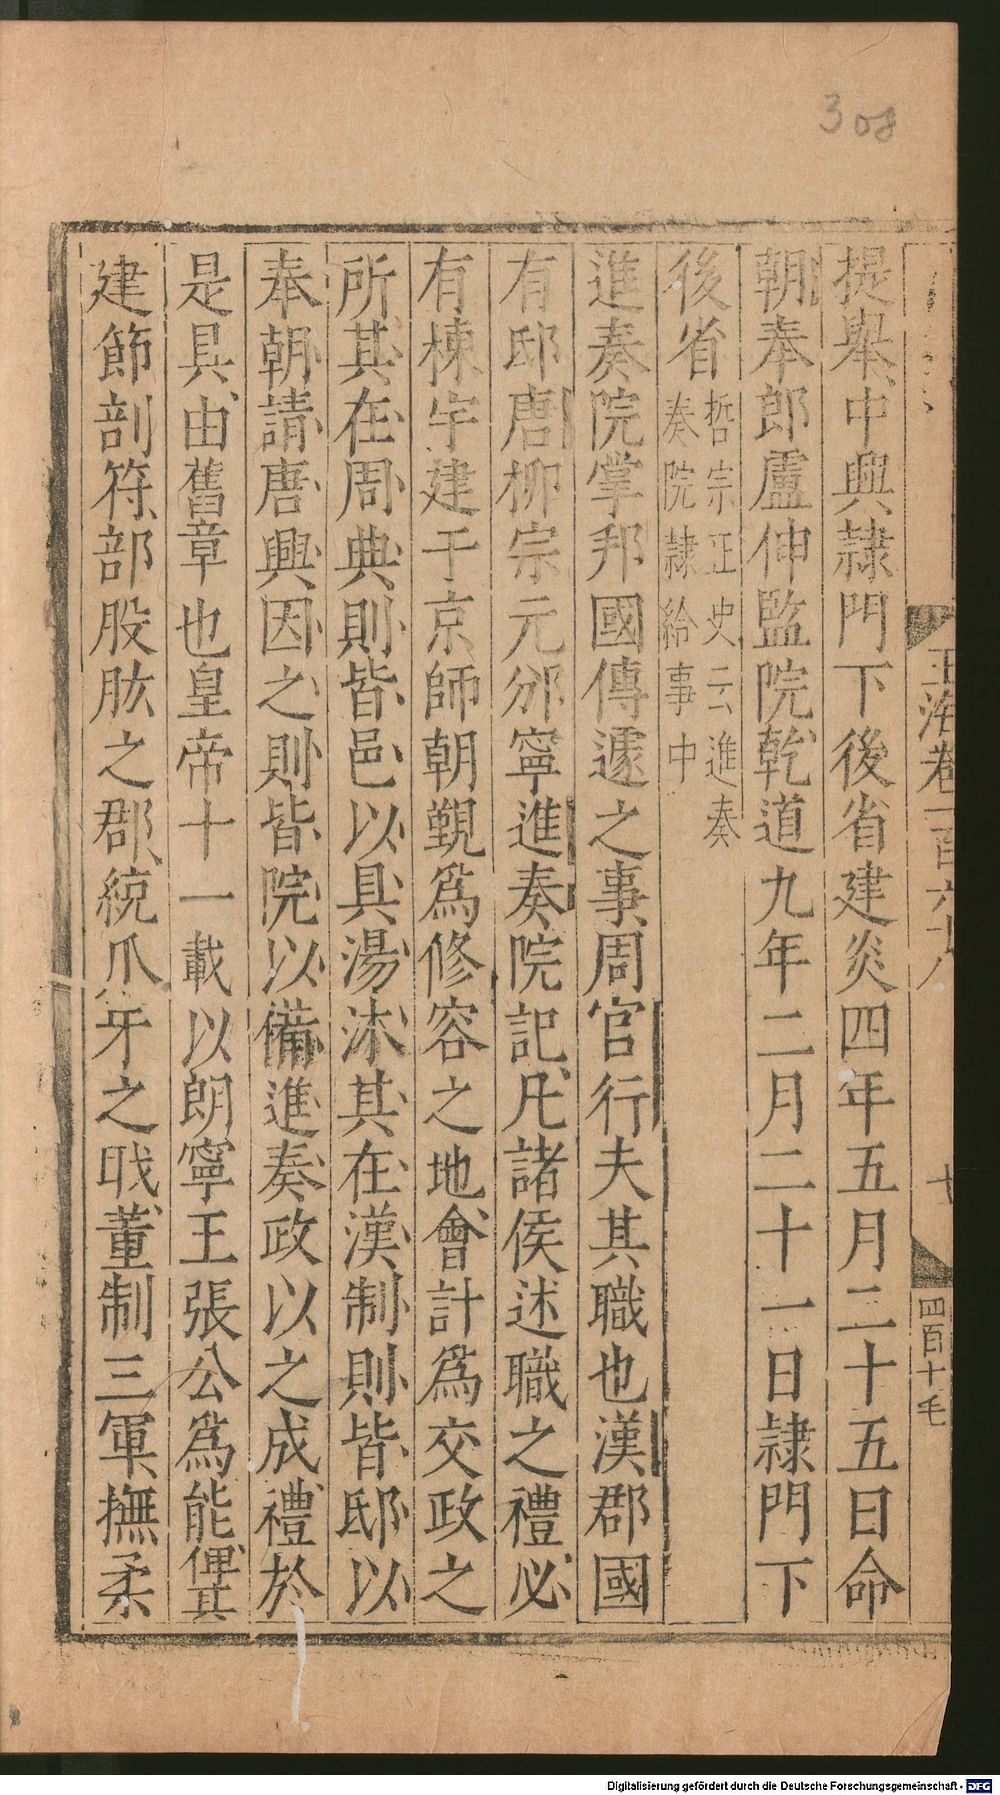 308
玉海卷一百六十八
四百十七
提舉中興隷門下後省建炎四年五月二十五日命
朝奉郎盧伸監院乾道九年二月二十一日隷門下
後省哲宗正史云進奏
奏院隷給事中
進奏院掌邦國傳遽之事周官行夫其職也漢郡國
有邸唐柳宗元邠寧進奏院記凡諸侯述職之禮必
有棟宇建于京師朝覲爲修容之地會計爲交政之
所其在周典則皆邑以具湯沐其在漢制則皆邸以
奉朝請唐興因之則皆院以備進奏政以之成禮於
是具由舊章也皇帝十一載以朗寧王張公爲能俾其
建節剖符部股肱之郡統爪牙之職董制三軍撫柔
Digitalisierung gefördert durch die Deutsche Forschungsgemeinschaft - DFG